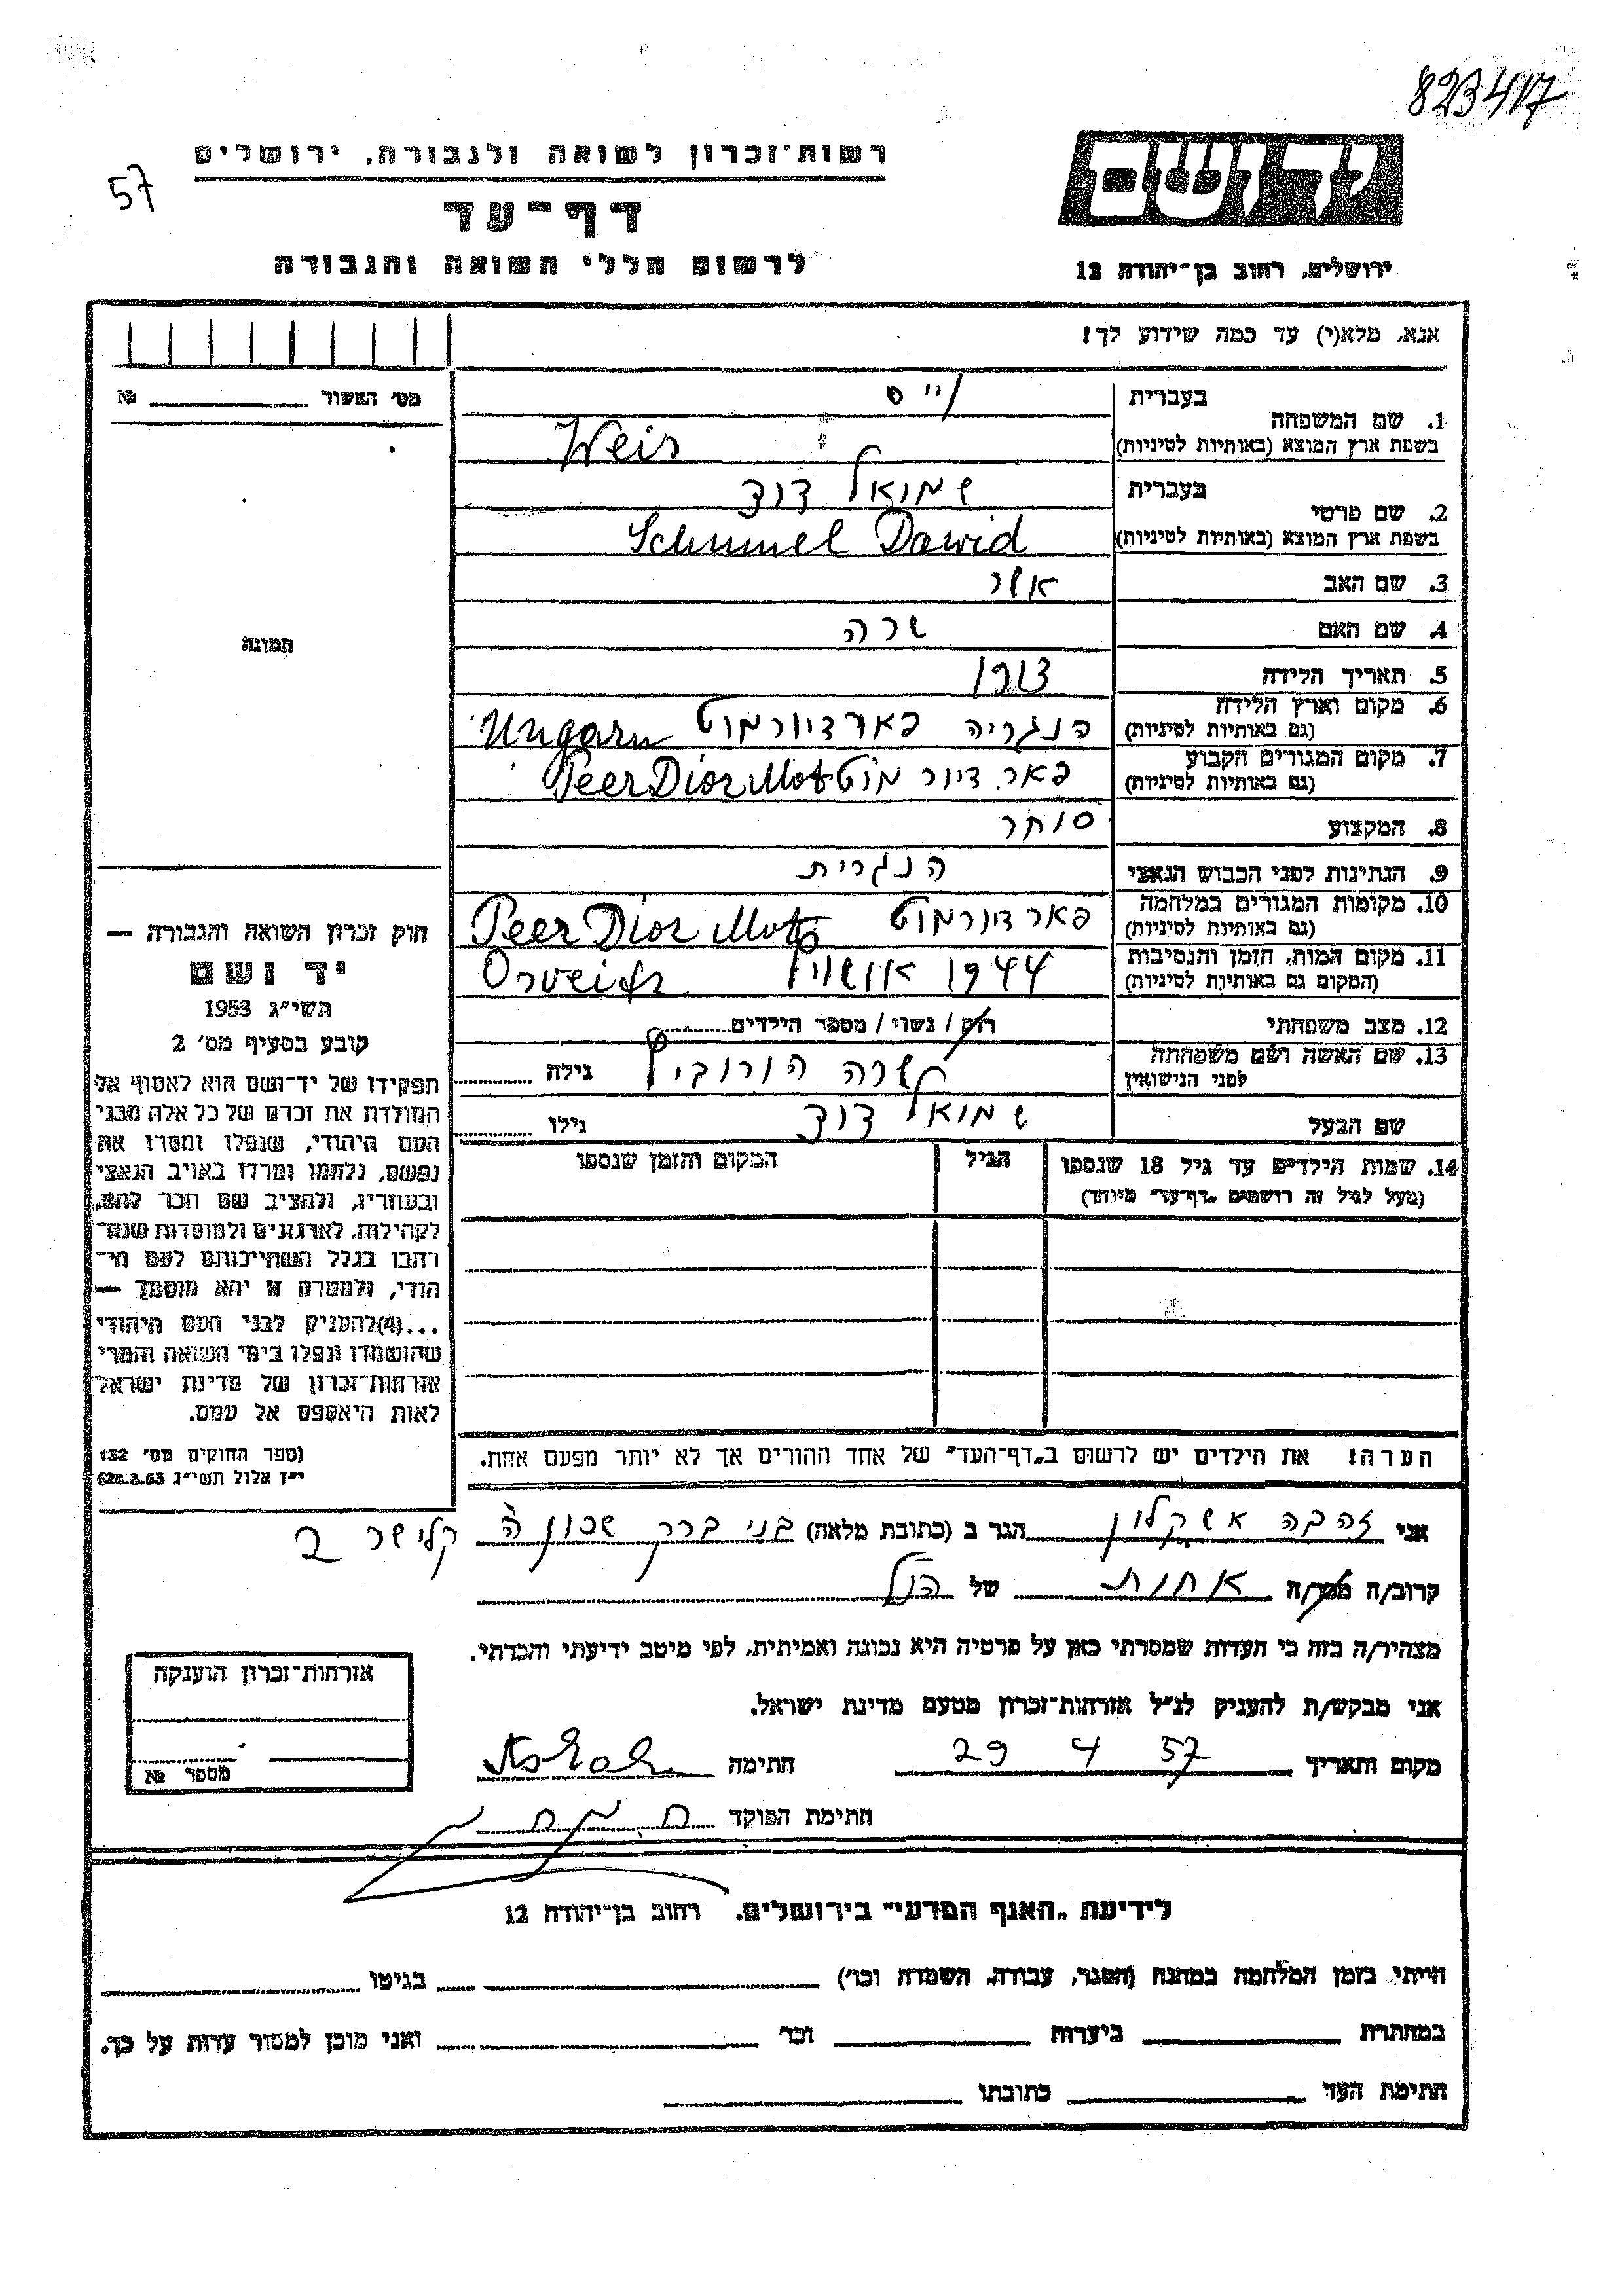 823417
57
רשות־זכרון לשואה ולגבורה, ירושלים
יד ושם
דף־עד
לרשום חללי השואה והגבורה
ירושלים, רחוב בן־יהודה 12
אנא, מלא(י) עד כמה שידוע לך!
מס׳ האשור № ________
1. שם המשפחה
בעברית
וייס
בשפת ארץ המוצא (באותיות לטיניות)
Weis
2. שם פרטי
בעברית
שמואל דוד
בשפת ארץ המוצא (באותיות לטיניות)
Schmuel Dawid
3. שם האב אשר
4. שם האם שרה
5. תאריך הלידה
6. מקום וארץ הלידה
(גם באותיות לטיניות)
הנגריה פארדיורמוט Ungarn
7. מקום המגורים הקבוע
(גם באותיות לטיניות)
פאר. דיור מוט Peer Dior Mot
8. המקצוע סוחר
9. הנתינות לפני הכבוש הנאצי הנגרית
10. מקומות המגורים במלחמה
(גם באותיות לטיניות)
פאר דיורמוט Peer Dior Mot
11. מקום המות, הזמן והנסיבות
(המקום גם באותיות לטיניות)
1944
12. מצב משפחתי רוק / נשוי / מספר הילדים
13. שם האשה ושם משפחתה
לפני הנישואין
שרה הורוביץ גילה
שם הבעל שמואל דוד גילו
14. שמות הילדים עד גיל 18 שנספו
(מעל לגיל זה רושמים „דף־עד" מיוחד)
הגיל
המקום והזמן שנספו
תמונה
חוק זכרון השואה והגבורה —
יד ושם
תשי״ג 1953
קובע בסעיף מס׳ 2
תפקידו של יד־ושם הוא לאסוף אל
המולדת את זכרם של כל אלה מבני
העם היהודי, שנפלו ומסרו את
נפשם, נלחמו ומרדו באויב הנאצי
ובעוזריו, ולהציב שם וזכר להם,
לקהילות, לארגונים ולמוסדות שנח־
רבו בגלל השתייכותם לעם הי־
הודי, ולמטרה זו יהא מוסמך —
...(4) להעניק לבני העם היהודי
שהושמדו ונפלו בימי השואה והמרי
אזרחות־זכרון של מדינת ישראל
לאות היאספם אל עמם.
(ספר החוקים מס׳ 132
י״ז אלול תשי״ג 28.8.53)
הערה! את הילדים יש לרשום ב„דף־העד" של אחד ההורים אך לא יותר מפעם אחת.
אני זהבה אשקלון הגר ב (כתובת מלאה) בני ברק שכון ה קלישר 2
קרוב/ה מכר/ה אחות של הנ״ל
מצהיר/ה בזה כי העדות שמסרתי כאן על פרטיה היא נכונה ואמיתית, לפי מיטב ידיעתי והכרתי.
אני מבקש/ת להעניק לנ״ל אזרחות־זכרון מטעם מדינת ישראל.
מקום ותאריך 29 4 57 חתימה
חתימת הפוקד
אזרחות־זכרון הוענקה
מספר №
לידיעת „האגף המדעי" בירושלים. רחוב בן־יהודה 12
הייתי בזמן המלחמה במחנה (הסגר, עבודה, השמדה וכו׳) ________ בגיטו ________
במחתרת ________ ביערות ________ וכו׳ ________ ואני מוכן למסור עדות על כך.
חתימת העד ________ כתובתו ________